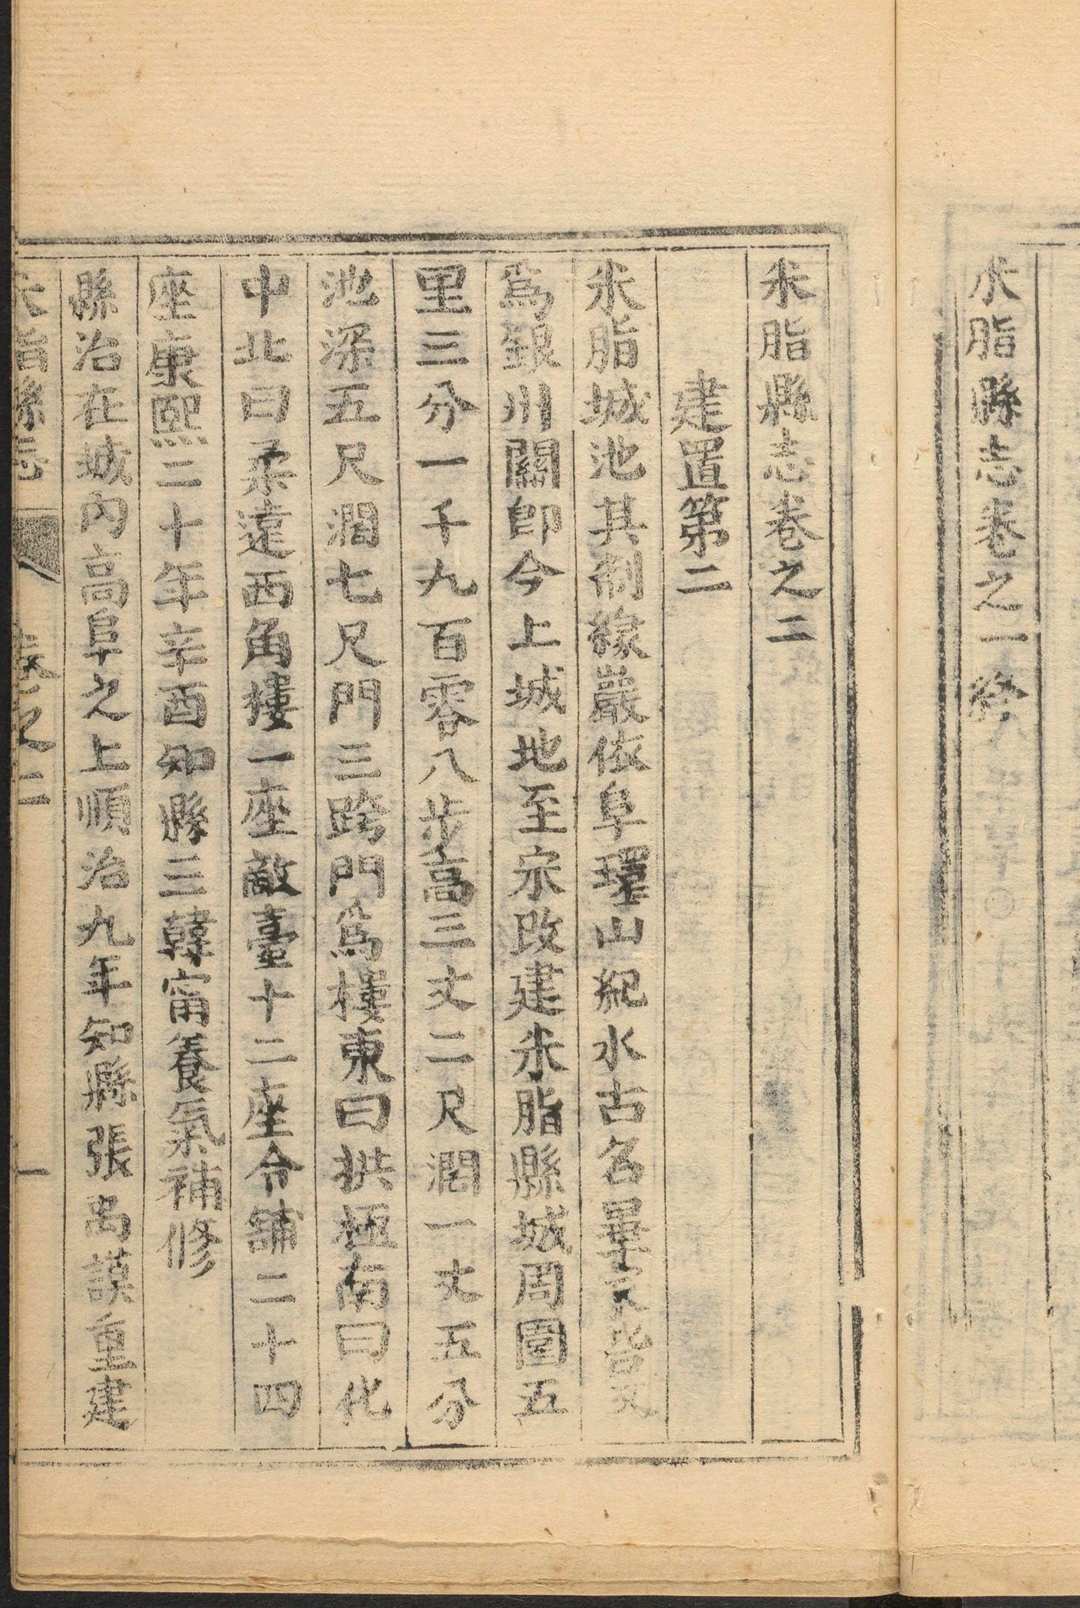 米脂縣志卷之一終
米脂縣志卷之二
建置第二
米脂城池其制緣巖依阜環山紀水古名畢天峕又
爲銀川關卽今上城地至宗改建米脂縣城周圍五
里三分一千九百零八步高三丈二尺濶一丈五分
池深五尺濶七尺門三跨門爲樓東曰拱極南曰化
中北曰柔遠西角樓一座敵臺十二座令舖二十四
座康熙二十年辛酉知縣三韓甯養氣補修
縣治在城內高阜之上順治九年知縣張禹謨重建
米脂縣志 卷之二 一